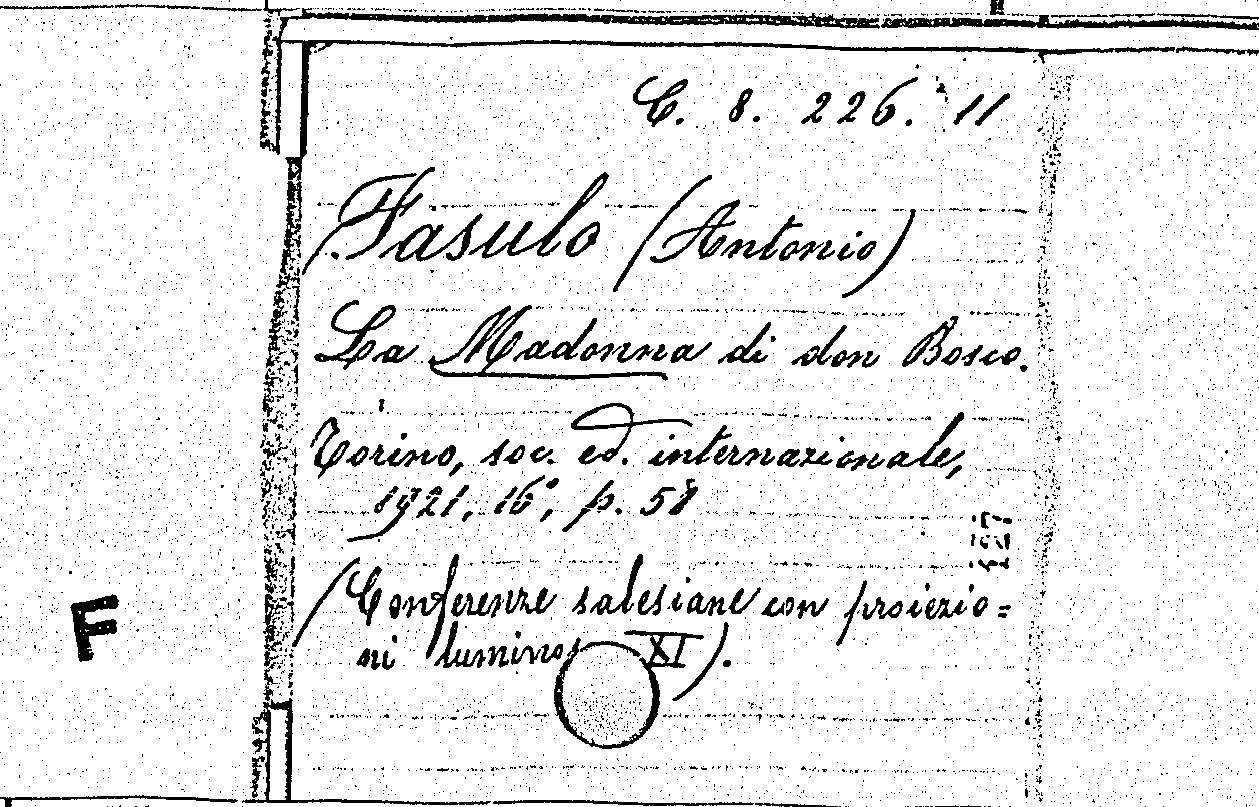 C. 8. 226. 11
Fasulo (Antonio)
La Madonna di don Bosco.
Torino, soc. ed. internazionale,
1921, 16°, p. 58
(Conferenze salesiane con proiezio=
ni luminos XI).
F